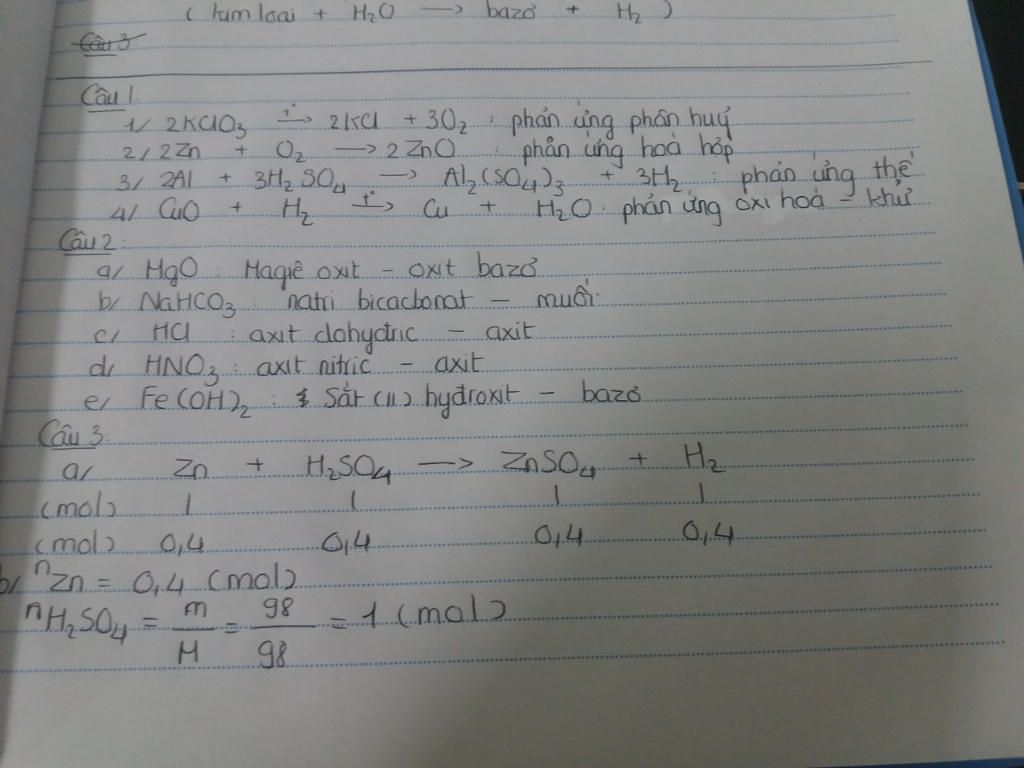 ( kim loại + H₂O → bazơ + H₂ )
Câu 3
Câu 1
1/ 2KClO₃ t°→ 2KCl + 3O₂ : phản ứng phân huỷ
2/ 2Zn + O₂ → 2ZnO : phản ứng hoá hợp
3/ 2Al + 3H₂SO₄ → Al₂(SO₄)₃ + 3H₂ : phản ứng thế
4/ CuO + H₂ t°→ Cu + H₂O : phản ứng oxi hoá – khử
Câu 2
a/ MgO : Magiê oxit – oxit bazơ
b/ NaHCO₃ : natri bicacbonat – muối
c/ HCl : axit clohyđric – axit
d/ HNO₃ : axit nitric – axit
e/ Fe(OH)₂ : Sắt (II) hyđroxit – bazơ
Câu 3
a/ Zn + H₂SO₄ → ZnSO₄ + H₂
(mol) 1 1 1 1
(mol) 0,4 0,4 0,4 0,4
b/ nZn = 0,4 (mol)
nH₂SO₄ = m/M = 98/98 = 1 (mol)